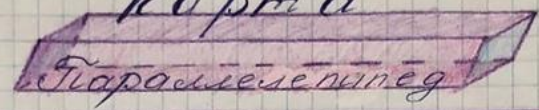 карта
Параллелепипед